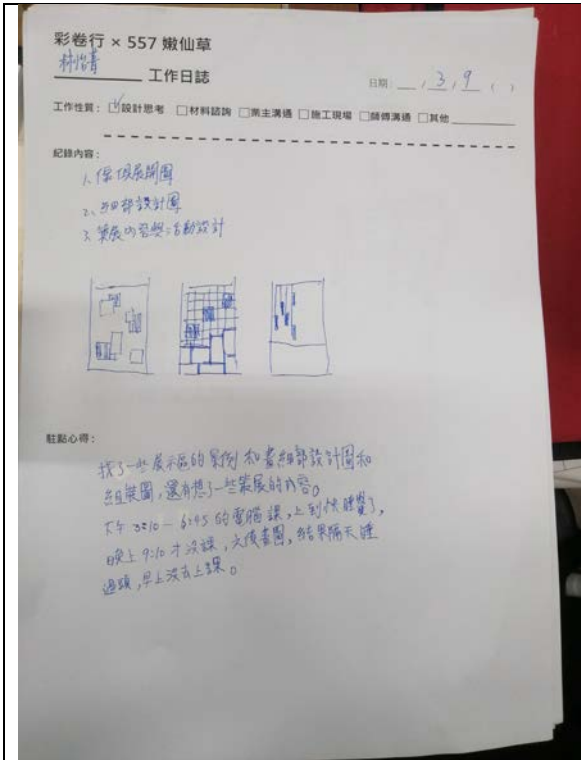 彩卷行 × 557 嫩仙草
林怡青 工作日誌
日期: __ / 3 / 9 ( )
工作性質: ☑設計思考 □材料諮詢 □業主溝通 □施工現場 □師傅溝通 □其他
紀錄內容:
1、傢俱展開圖
2、細部設計圖
3、策展內容與活動設計
駐點心得:
找了一些展示區的案例和畫細部設計圖和
組裝圖,還有想了一些策展的內容。
下午 3:10 – 6:45 的電腦課,上到快睡覺了,
晚上 9:10 才沒課,又便畫圖,結果隔天睡
過頭,早上沒去上課。